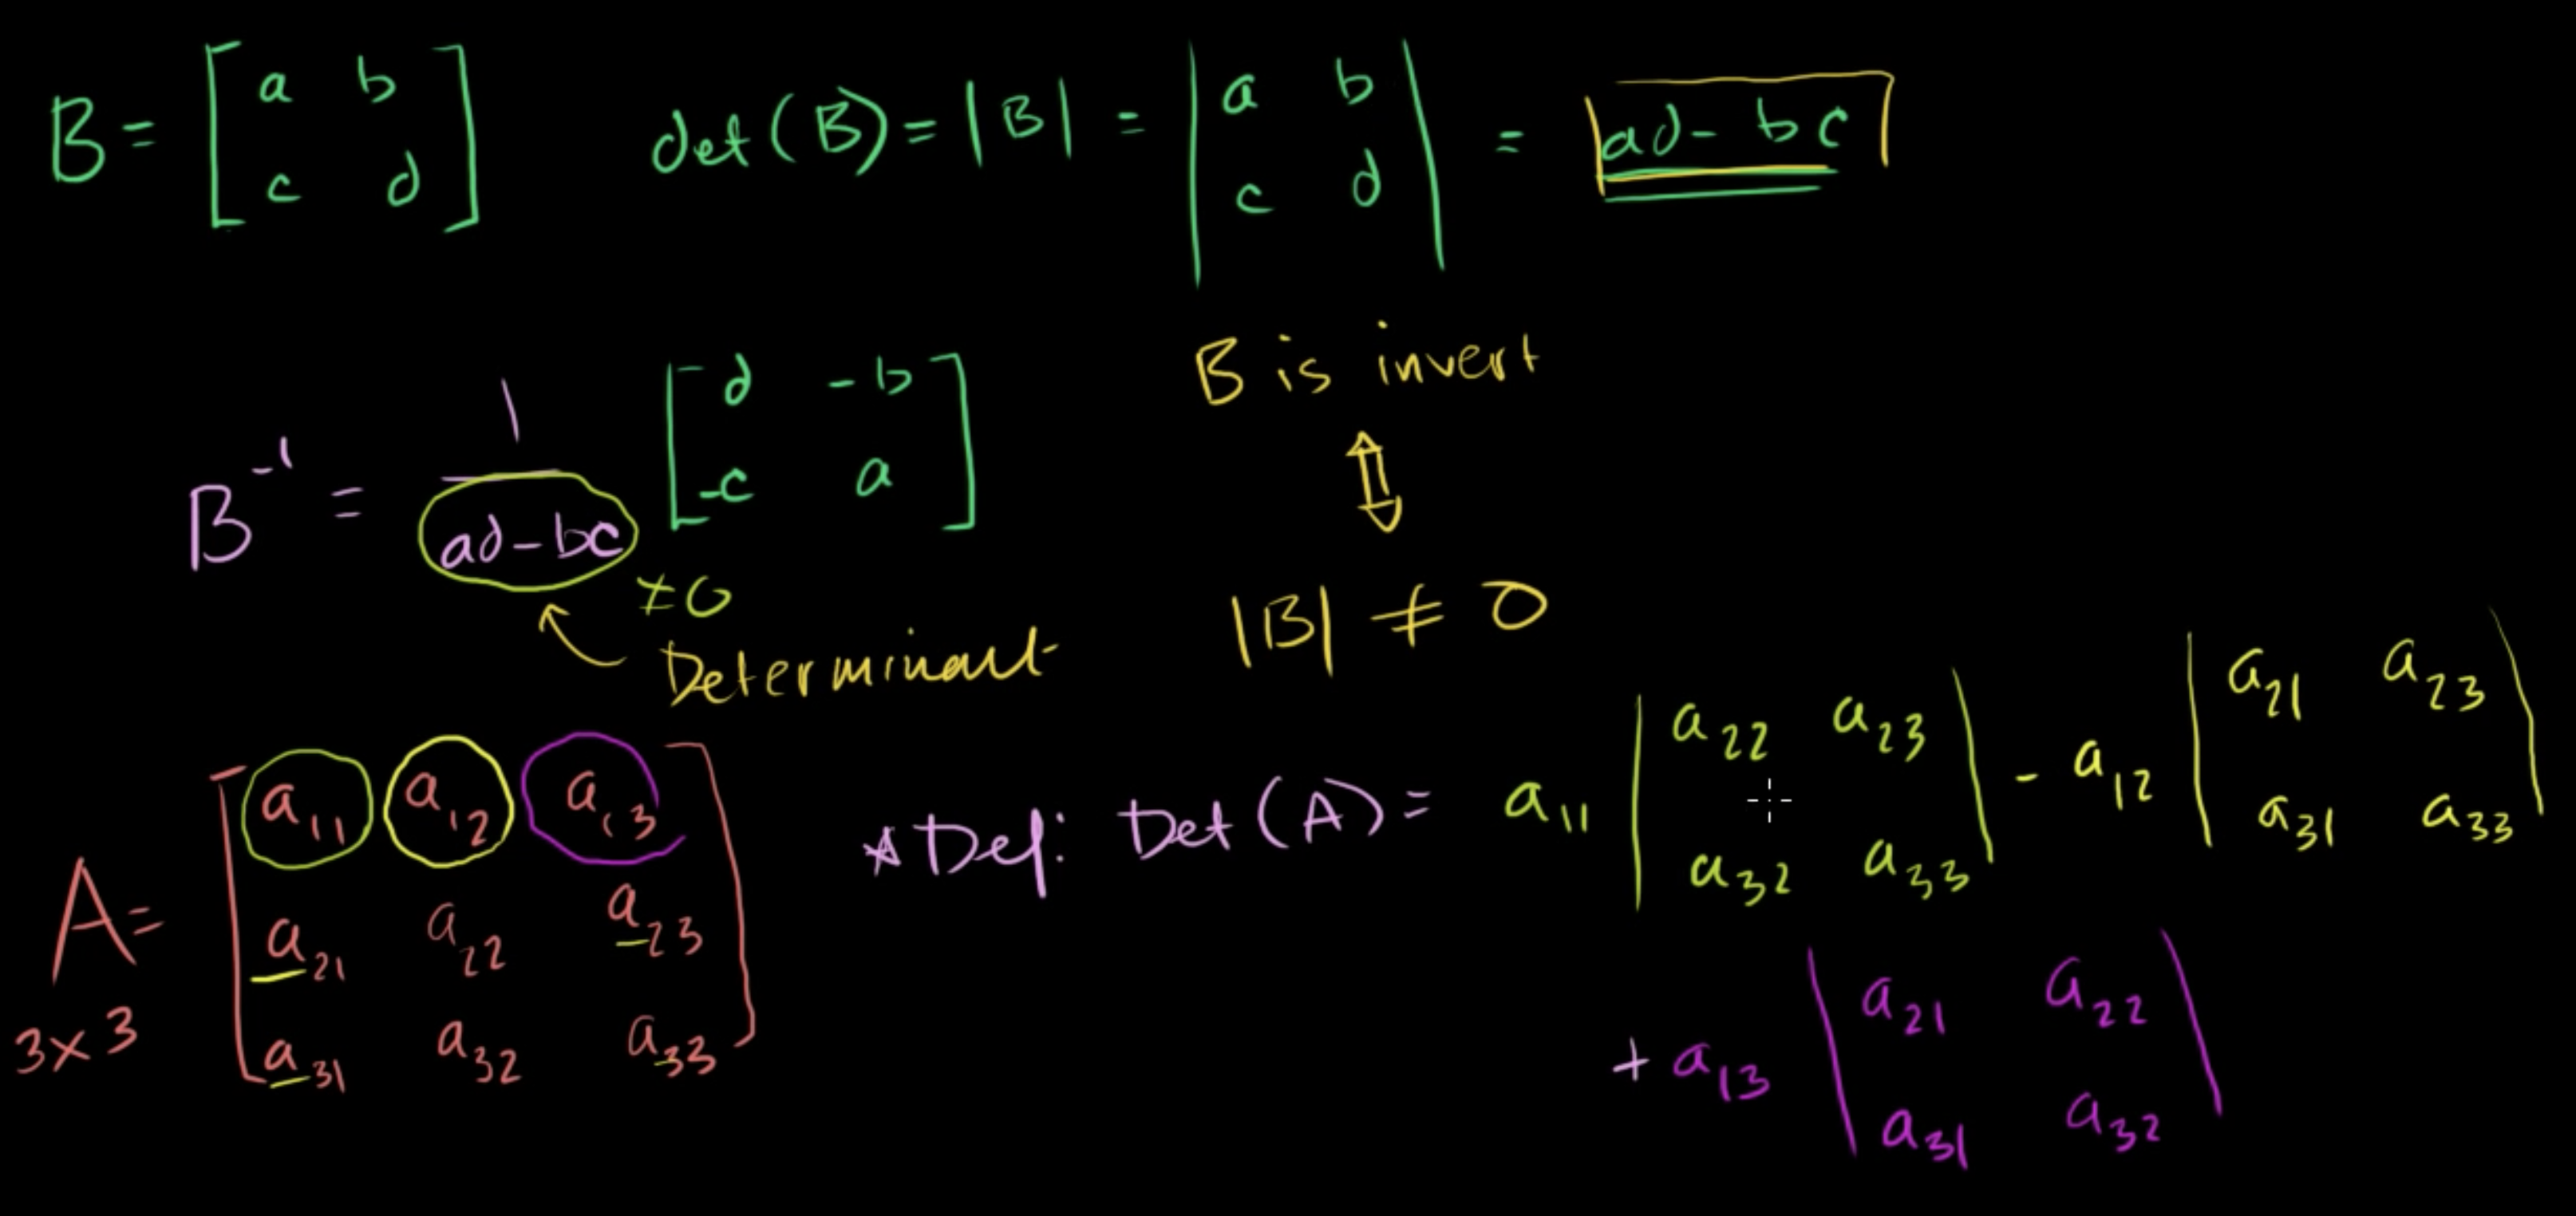 B = [a b; c d]  det(B) = |B| = |a b; c d| = ad - bc
B⁻¹ = 1/(ad-bc) [d -b; -c a]
≠0
Determinant
B is invert
⇕
|B| ≠ 0
A = [a₁₁ a₁₂ a₁₃; a₂₁ a₂₂ a₂₃; a₃₁ a₃₂ a₃₃]
3×3
*Def: Det(A) = a₁₁ |a₂₂ a₂₃; a₃₂ a₃₃| - a₁₂ |a₂₁ a₂₃; a₃₁ a₃₃|
+ a₁₃ |a₂₁ a₂₂; a₃₁ a₃₂|